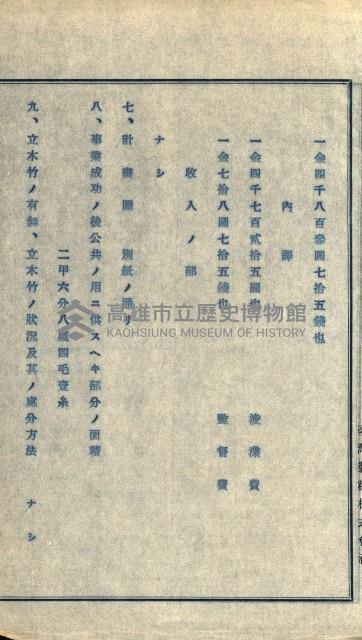 一金四千八百參圓七拾五錢也
內譯
一金四千七百貳拾五圓也 浚渫費
一金七拾八圓七拾五錢也 監督費
收入ノ部
ナシ
七、計畫圖 別紙ノ通リ
八、事業成功ノ後公共ノ用ニ供スヘキ部分ノ面積
二甲六分八厘四毛壹糸
九、立木竹ノ有無、立木竹ノ狀況及其ノ處分方法 ナシ
高雄市立歷史博物館
KAOHSIUNG MUSEUM OF HISTORY